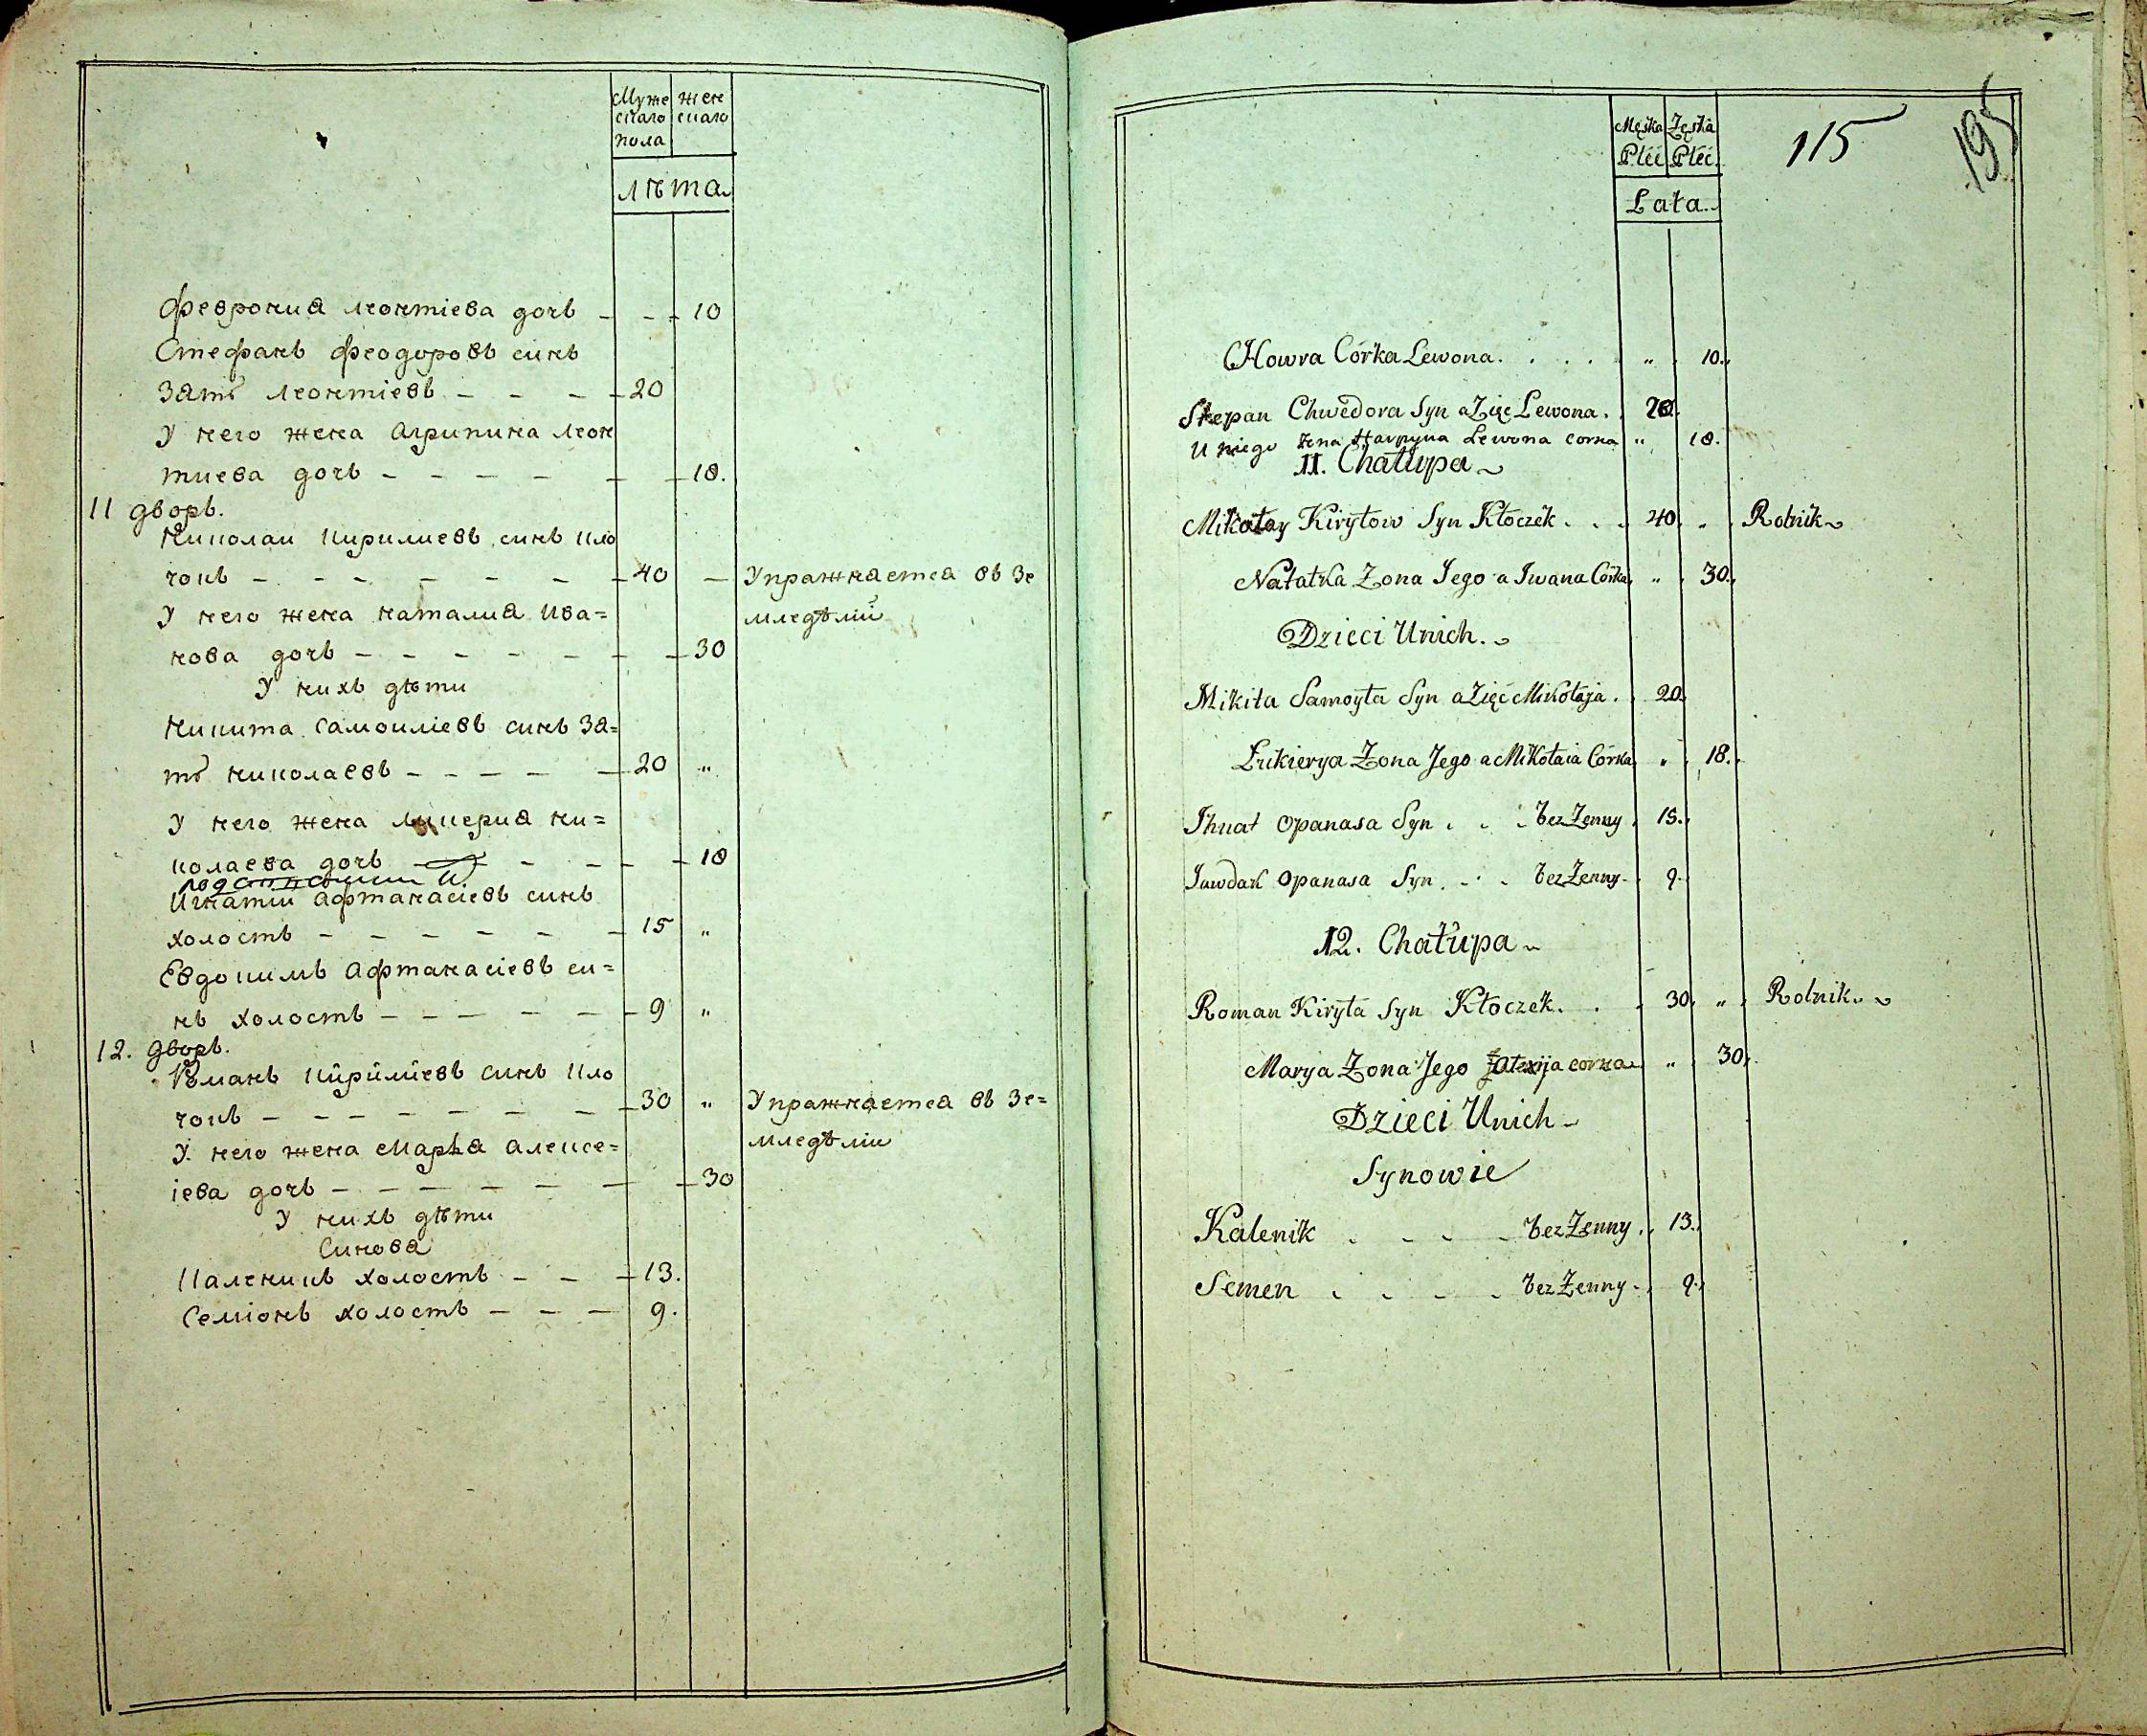 Муже жен
скаго скаго
пола
лѣта
Феврониа леонтіева дочь - - - 10
Стефанъ феодоровъ синъ
Зать леонтіевъ - - - 20
У него жена Агрипина леон
тиева дочь - - - - - 18.
11 дворъ.
Николаи Кирилиевъ синъ Кло
чокъ - - - - - - - 40 — Упражнаетса въ Зе
У него жена наталиа ива= мледѣлій
нова дочь - - - - - - - 30
У нихъ дѣти
Никита Самоиліевъ синъ За=
ть николаевъ - - - - - 20 „
У него жена ликериа ни=
колаева дочь - - - - 18
Игнатии Афтанасіевъ синъ
холостъ - - - - - - 15 „
Евдокимъ Афтанасіевъ си=
нъ холостъ - - - - - - 9 „
12. дворъ.
Романъ Кирилиевъ синъ Кло
чокъ - - - - - - - 30 „ Упражнаетса въ Зе=
У него жена Марьа алексе= мледѣліи
іева дочь - - - - - - - 30
У нихъ дѣти
Синова
Каленикъ холостъ - - - 13.
Семіонъ холостъ - - - 9.
Męska Zęska
Płéć Płéć.
Lata.
115
195
Chowra Córka Lewona. . . . . „ . 10.
Stepan Chwedora Syn a Zięc Lewona. . 20.
U niego żena Harpyna Lewona corka „ 18.
11. Chałupa
Mikołay Kiryłow Syn Kłoczek . . . 40. „ . Rolnik
Natałka Zona Jego a Iwana Córka „ . 30.
Dzieci Unich.
Mikita Samoyła Syn a Zięć Mikołaja . . 20.
Łukierya Zona Jego a Mikołaia Córka „ . 18.
Ihnat Opanasa Syn . . . bezZenny . 15.
Jawdak Opanasa Syn . . . bezZenny . 9.
12. Chałupa
Roman Kiryła Syn Kłoczek. . . 30. „ . Rolnik.
Marya Zona Jego Alexija corka „ . 30.
Dzieci Unich
Synowie
Kalenik . . . . bezZenny . . 13.
Semen . . . . bezZenny . . 9.